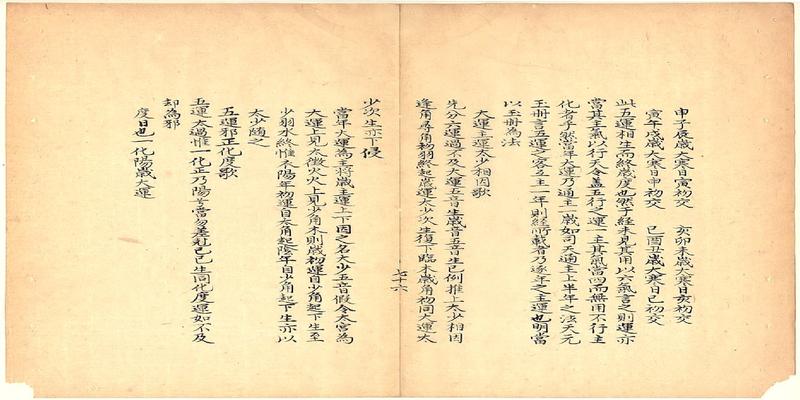 申子辰歲大寒日寅初交　亥卯未歲大寒日亥初交
寅午戌歲大寒日申初交　巳酉丑歲大寒日巳初交
此五運相生而終歲度也然于經未見其用以六氣言之則運亦
當其主氣以行天令蓋五行之運一主其氣當四而無用不行主
化者乎然當年大運乃通主一歲如司天通主上半年之法天元
玉冊言五運之客主一年則經所載者乃逐年之主運也明當
以玉冊為法
大運主運太少相因歌
先分五運過不及大運五音生歲音五音生已例推上太少相因
逢角尋角初羽終起歲運太少次生復下臨木歲角初同大運太
七十六
少次生亦下侵
當年大運為主將歲主運上下因之名太少五音假令太宮為
大運上見太徵火火上見少角木則歲初運自少角起下生至
少羽水終惟太陽年初運自太角起陰年自少角起下生亦以
太少隨之
五運邪正化度歌
五運太過惟一化正乃陽當勿差亂已已生同化度運如不及
却為邪
度日也一化陽歲大運